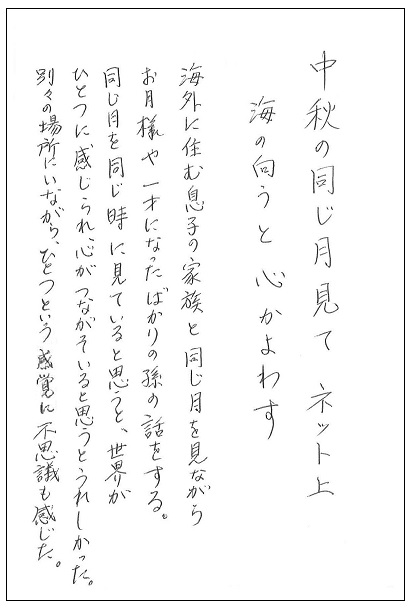 中秋の同じ月見てネット上
海の向うと心かよわす
海外に住む息子の家族と同じ月を見ながら
お月様や一才になったばかりの孫の話をする。
同じ月を同じ時に見ていると思うと、世界が
ひとつに感じられ、心がつながそいると思うとうれしかった。
別々の場所にいながら、ひとつという感覚に不思議も感じた。